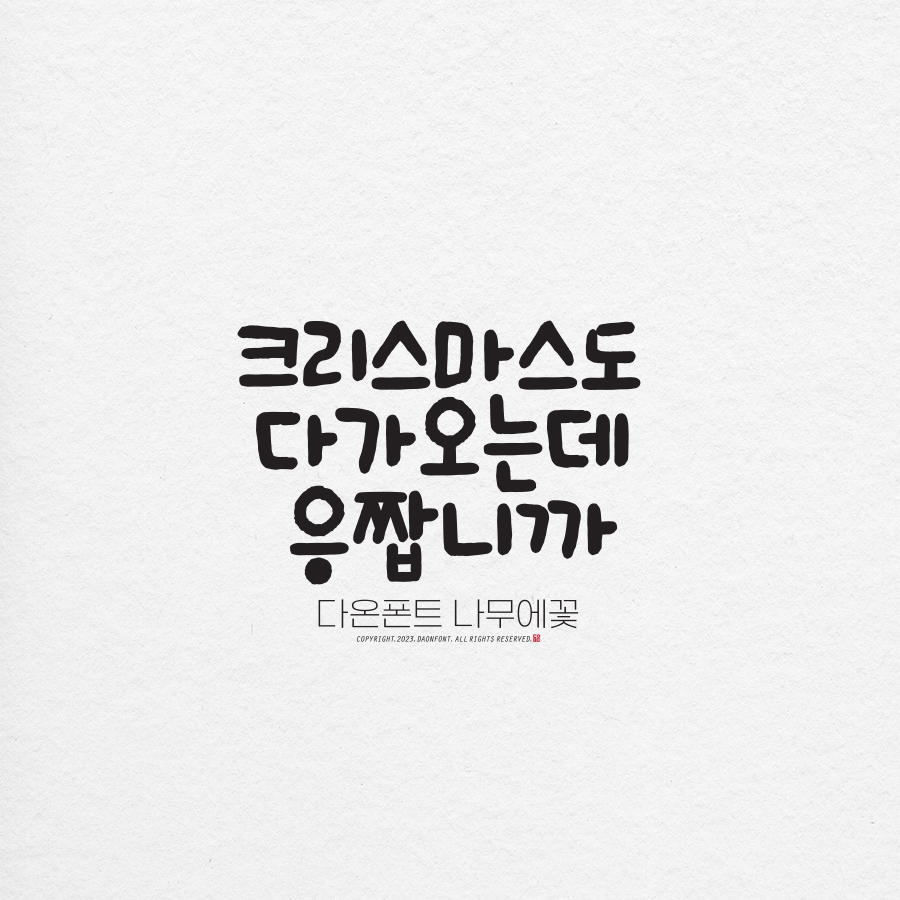 크리스마스도
다가오는데
응짭니까
다온폰트 나무에꽃
COPYRIGHT.2023.DAONFONT. ALL RIGHTS RESERVED.